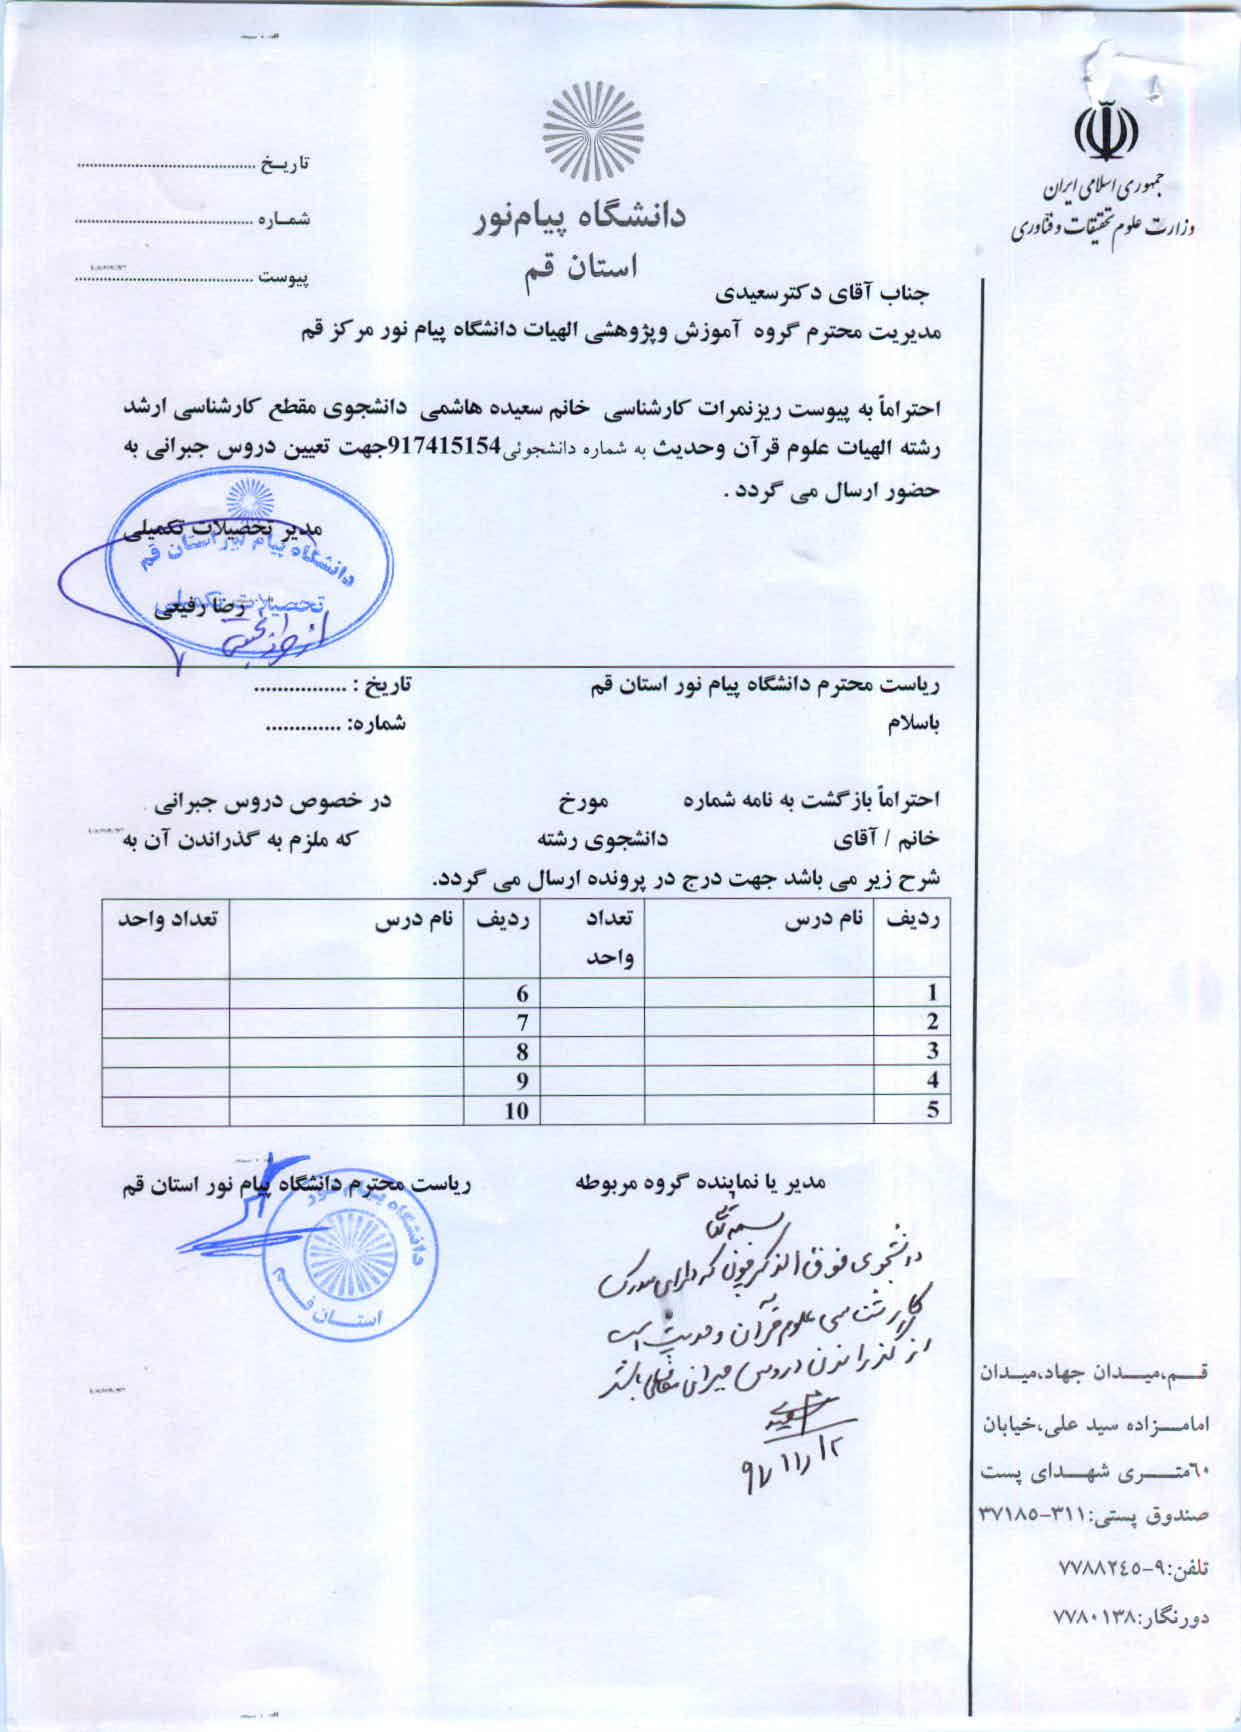 جمهوری اسلامی ایران
وزارت علوم تحقیقات و فنّاوری
دانشگاه پیام‌نور
استان قم
تاریـخ ..........................................
شمـاره ..........................................
پیوست ..........................................
جناب آقای دکترسعیدی
مدیریت محترم گروه آموزش وپژوهشی الهیات دانشگاه پیام نور مرکز قم
احتراماً به پیوست ریزنمرات کارشناسی خانم سعیده هاشمی دانشجوی مقطع کارشناسی ارشد
رشته الهیات علوم قرآن وحدیث به شماره دانشجوئی917415154جهت تعیین دروس جبرانی به
حضور ارسال می گردد .
مدیر تحصیلات تکمیلی
دانشگاه پیام نور استان قم
تحصیلات تکمیلی
رضا رفیعی
ریاست محترم دانشگاه پیام نور استان قم تاریخ : ................
باسلام شماره: .............
احتراماً بازگشت به نامه شماره مورخ در خصوص دروس جبرانی
خانم / آقای دانشجوی رشته که ملزم به گذراندن آن به
شرح زیر می باشد جهت درج در پرونده ارسال می گردد.
ردیف نام درس تعداد واحد ردیف نام درس تعداد واحد
1 6
2 7
3 8
4 9
5 10
مدیر یا نماینده گروه مربوطه ریاست محترم دانشگاه پیام نور استان قم
دانشگاه پیام نور
استـــان قـــم
بسمه تعالی
دانشجوی فوق الذکر چون که دارای مدرک
کارشناسی علوم قرآن و حدیث است
از گذراندن دروس جبرانی معاف می باشد
سعیدی
۹۱/۱۱/۲
قـــم،میـــدان جهاد،میـدان
امامـــزاده سید علی،خیابان
٦٠متـــری شهـــدای پست
صندوق پستی:۳۱۱-۳۷۱۸۵
تلفن:۹-۷۷۸۸۲٤٥
دورنگار:۷۷۸۰۱۳۸